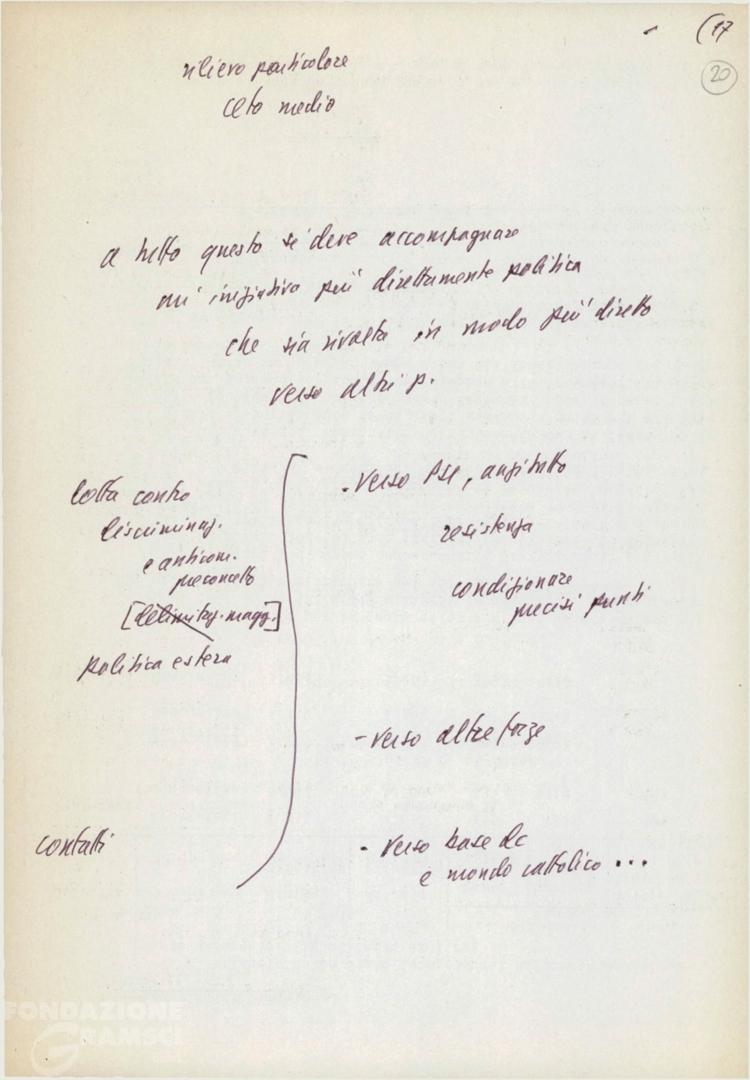 (17
20
rilievo particolare
ceto medio
a tutto questo si deve accompagnare
un' iniziativa più direttamente politica
che sia rivolta in modo più diretto
verso altri p.
lotta contro
discriminaz.
e anticom.
preconcetto
[delimitaz. magg.]
politica estera
contatti
- verso PSI, anzitutto
resistenza
condizionare
precisi punti
- verso altre forze
- verso base dc
e mondo cattolico ...
FONDAZIONE
GRAMSCI